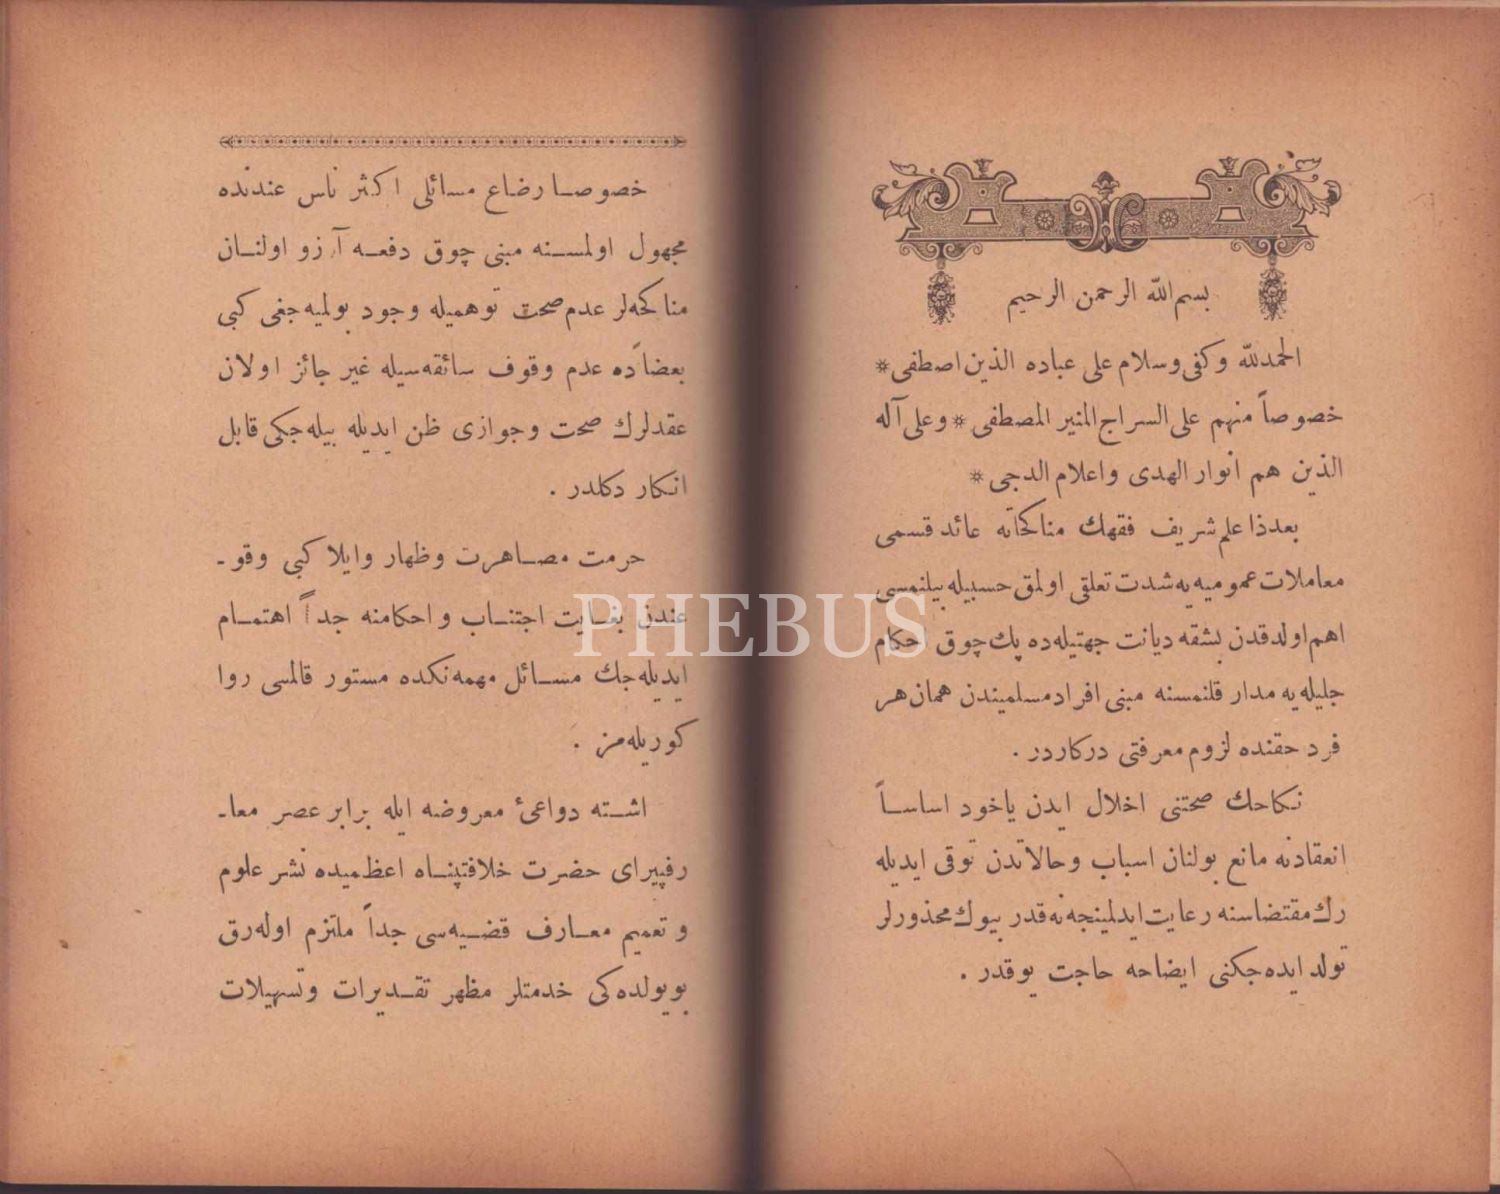 بسم الله الرحمن الرحيم
الحمدلله وكفى وسلام على عباده الذين اصطفى *
خصوصاً منهم على السراج المنير المصطفى * وعلى آله
الذين هم انوار الهدى واعلام الدجى *
بعدذا علم شريف فقهك مناكحاته عائد قسمى
معاملات عموميه يه شدت تعلقى اولمق حسبيله بيلنمسى
اهم اولدقدن بشقه ديانت جهتيله ده پك چوق احكام
جليله يه مدار قلنمسنه مبنى افراد مسلميندن همان هر
فرد حقنده لزوم معرفتى دركاردر .
نكاحك صحتنى اخلال ايدن ياخود اساساً
انعقادنه مانع بولنان اسباب وحالاتدن توقى ايديله
رك مقتضاسنه رعايت ايدلمينجه نه قدر بيوك محذورلر
تولد ايده جكنى ايضاحه حاجت يوقدر .
خصوصا رضاع مسائلى اكثر ناس عندنده
مجهول اولمسنه مبنى چوق دفعه آرزو اولنان
مناكحه لر عدم صحت توهميله وجود بولميه جغى كبى
بعضاًده عدم وقوف سائقه سيله غير جائز اولان
عقدلرك صحت وجوازى ظن ايديله بيله جكى قابل
انكار دكلدر .
حرمت مصاهرت وظهار وايلا كبى وقو-
عندن بغايت اجتناب واحكامنه جداً اهتمام
ايديله جك مسائل مهمه نكده مستور قالمسى روا
كوريله مز .
اشته دواعئ معروضه ايله برابر عصر معا-
رفپيراى حضرت خلافتپناه اعظميده نشر علوم
وتعميم معارف قضيه سى جداً ملتزم اوله رق
بويولده كى خدمتلر مظهر تقديرات وتسهيلات
PHEBUS